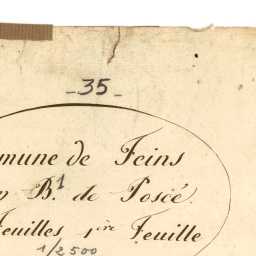 _ 35 _
mune de Feins
n B.1 de Poscé.
Feuilles 1ire Feuille
1/2500